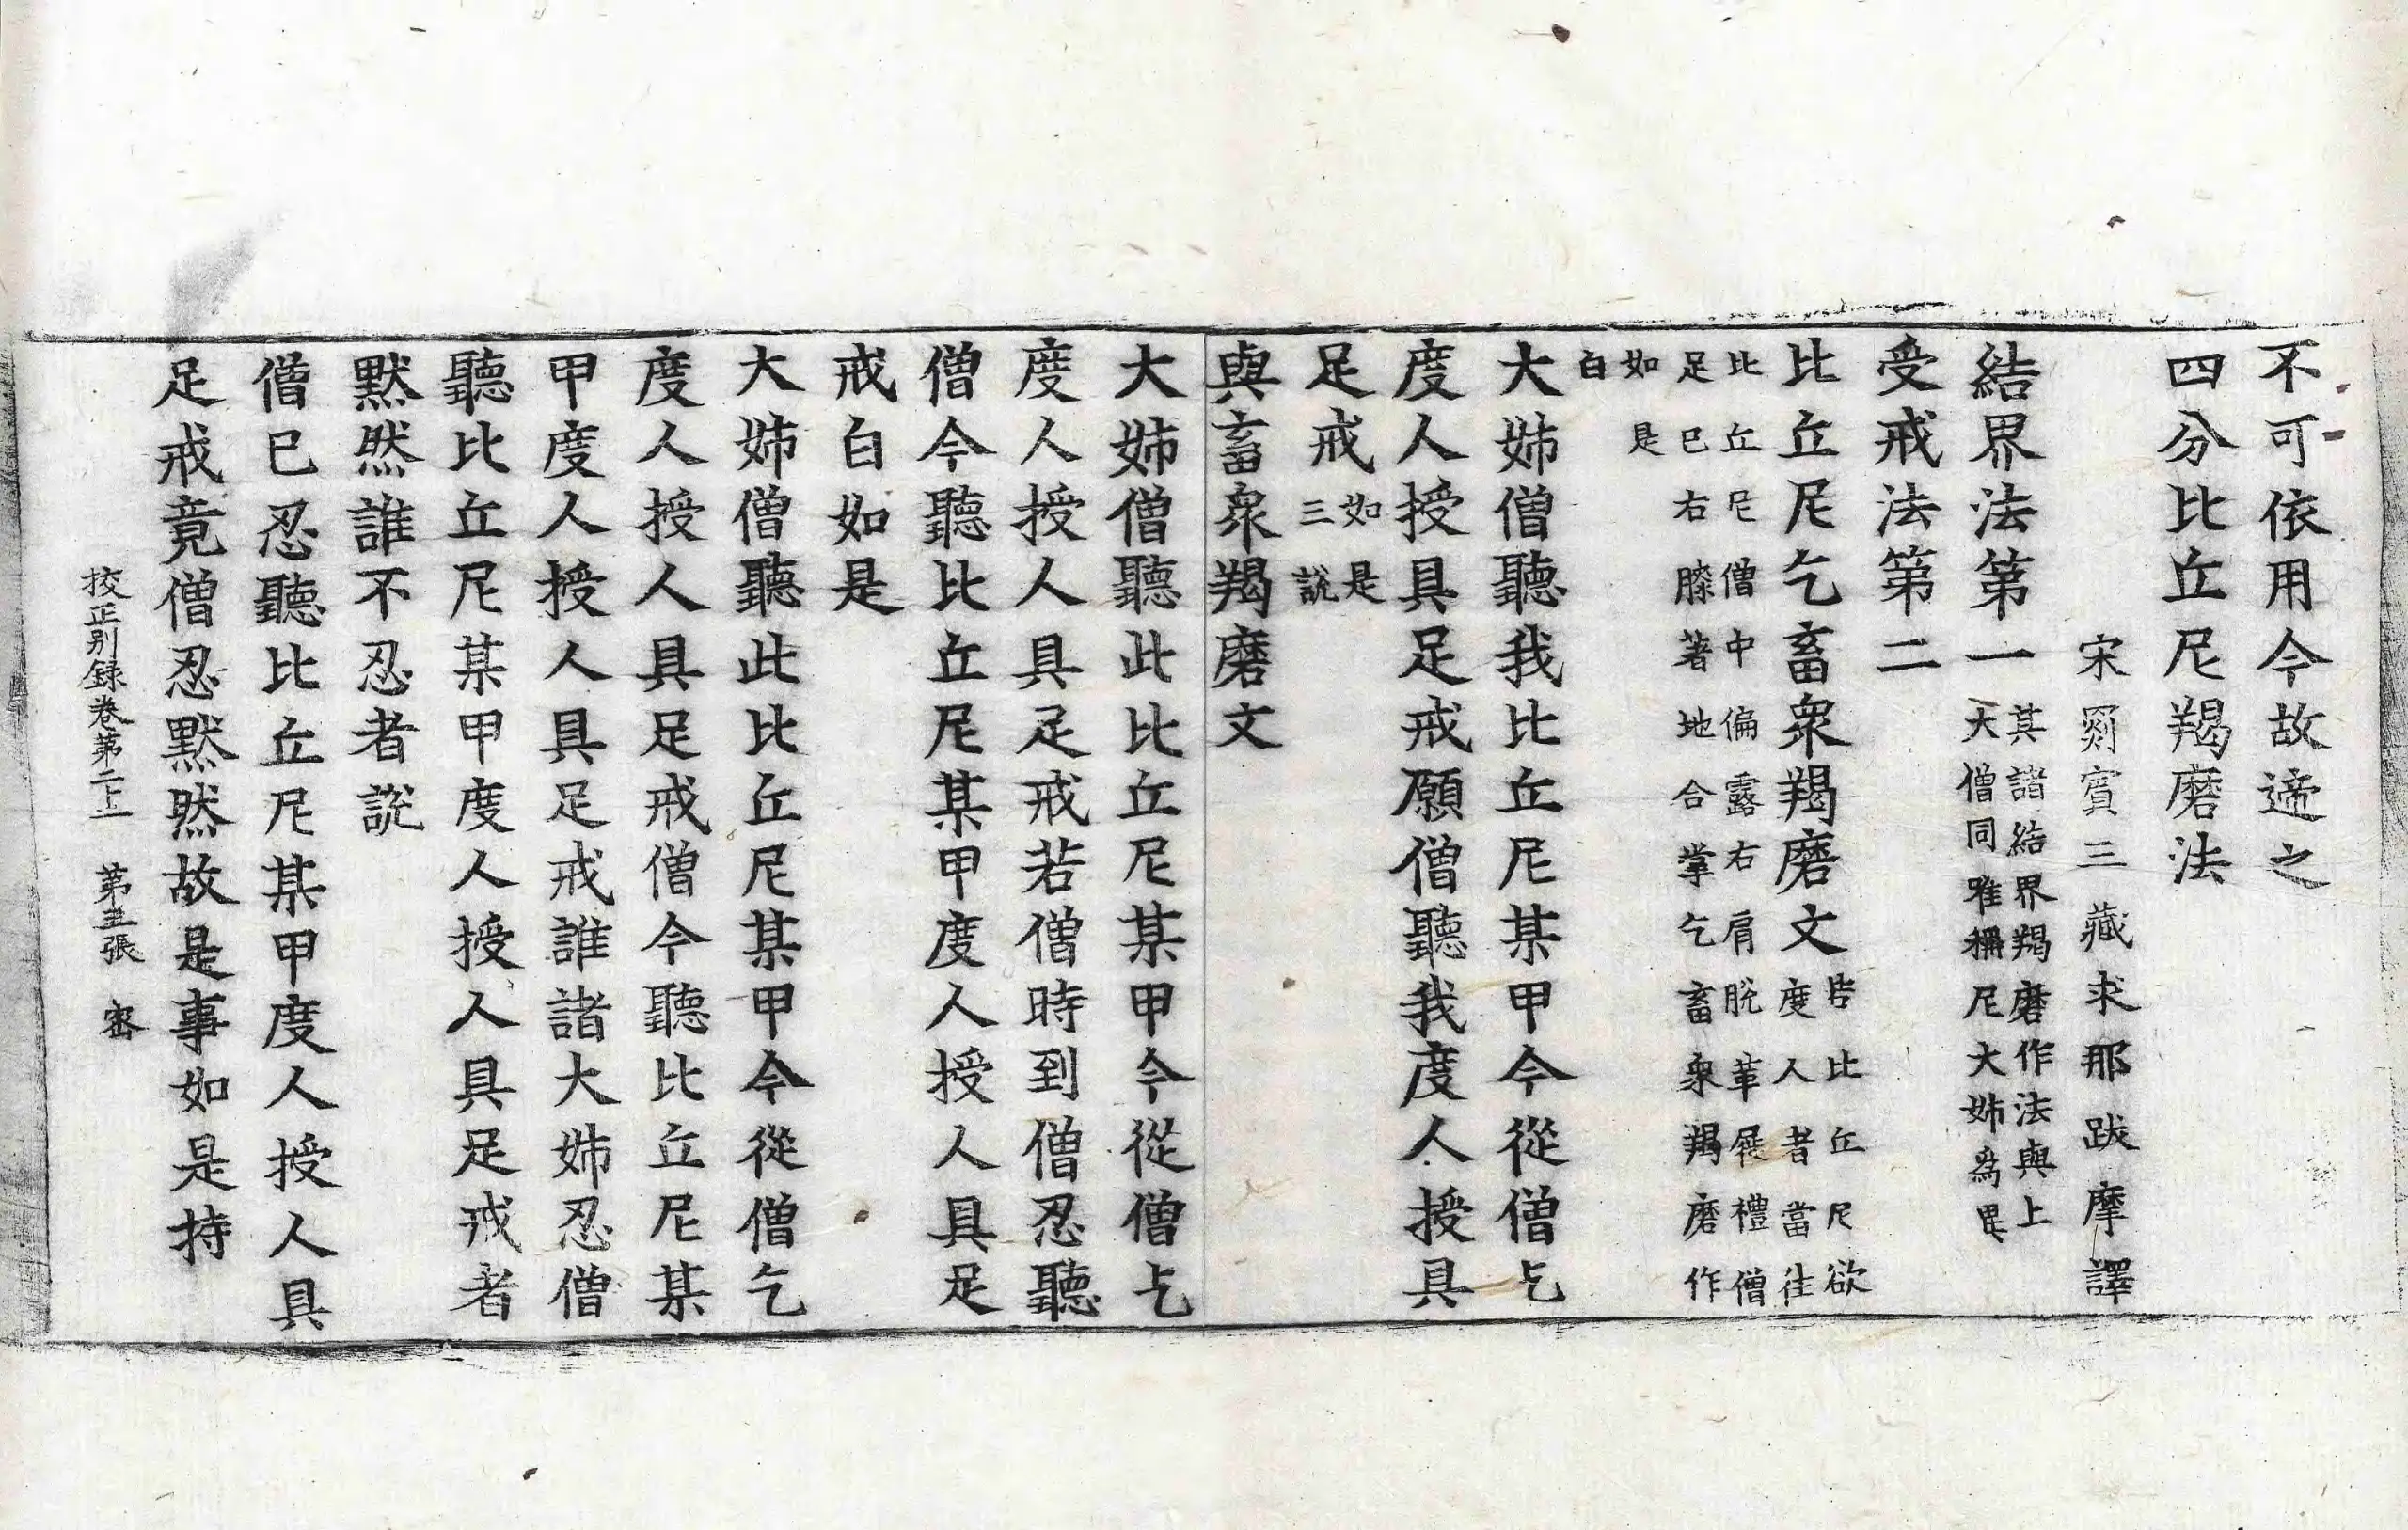 不可依用今故遆之
四分比丘尼羯磨法
宋罽賓三藏求那跋摩譯
結界法第一其諸結界羯磨作法與上
大僧同唯稱尼大姉爲異
受戒法第二
比丘尼乞畜衆羯磨文皆比丘尼欲
度人者當往
比丘尼僧中偏露右肩脫革屣禮僧
足已右膝著地合掌乞畜衆羯磨作
如是
白
大姉僧聽我比丘尼某甲今從僧乞
度人授具足戒願僧聽我度人授具
足戒如是
三說
與畜衆羯磨文
大姉僧聽此比丘尼某甲今從僧乞
度人授人具足戒若僧時到僧忍聽
僧今聽比丘尼某甲度人授人具足
戒白如是
大姉僧聽此比丘尼某甲今從僧乞
度人授人具足戒僧今聽比丘尼某
甲度人授人具足戒誰諸大姉忍僧
聽比丘尼某甲度人授人具足戒者
默然誰不忍者說
僧已忍聽比丘尼某甲度人授人具
足戒竟僧忍默然故是事如是持
挍正别録卷第二上 第五張 密